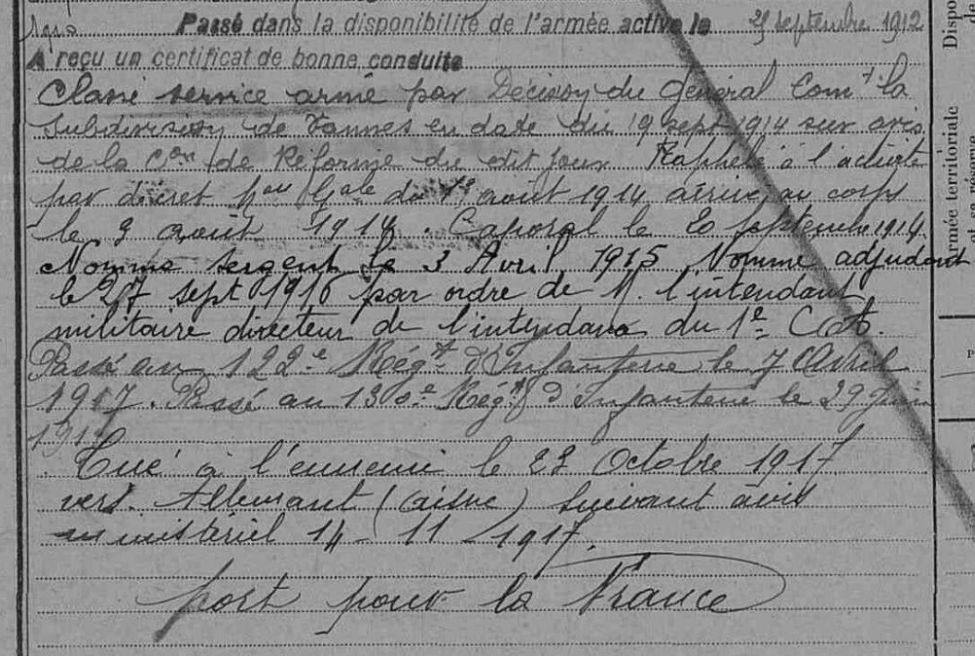 Passé dans la disponibilité de l'armée active le septembre 1912
A reçu un certificat de bonne conduite
Classé service armé par Décision du Général Comt la
Subdivision de Vannes en date du 19 sept 1914 sur avis
de la Con de Réforme du dit jour Rappelé à l'activité
par décret du 1er août 1914 arrivé au corps
le 3 août 1914. Caporal le 20 septembre 1914.
Nommé sergent le 3 Avril 1915 Nommé adjudant
le 27 sept 1916 par ordre de M. l'intendant
militaire directeur de l'intendance du 1e
Passé au 122e Régt d'Infanterie le 7 Avril
1917. Passé au 130e Régt d'Infanterie le 29 Juin
1917
Tué à l'ennemi le 23 Octobre 1917
vers Allemant (Aisne) suivant avis
ministériel 14-11-1917.
Mort pour la France
Armée territoriale